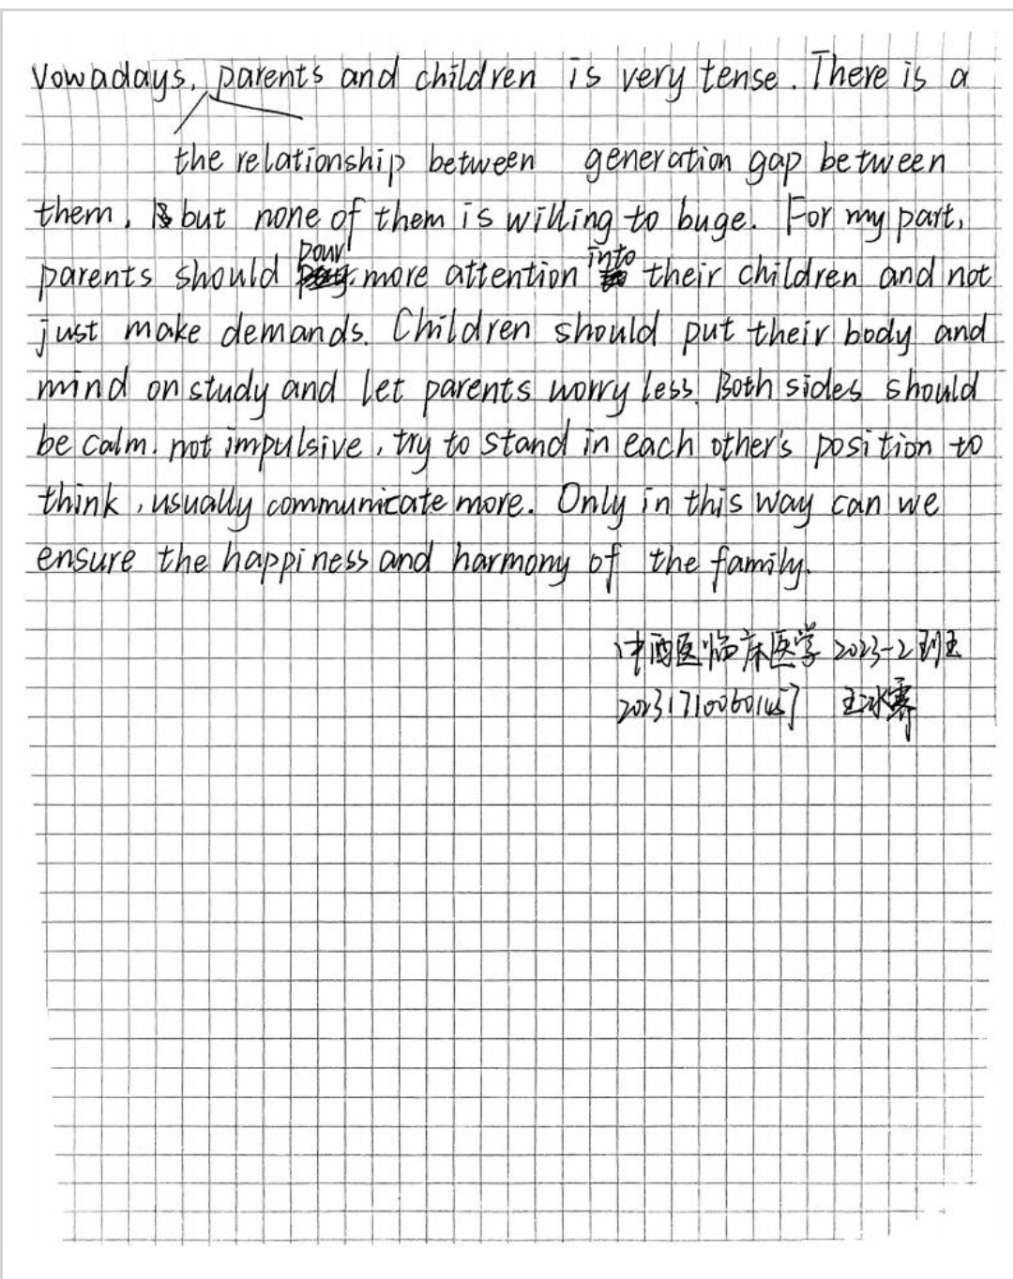 Vowadays, parents and children is very tense. There is a
the relationship between generation gap between
them, but none of them is willing to buge. For my part,
pour into
parents should more attention their children and not
just make demands. Children should put their body and
mind on study and let parents worry less. Both sides should
be calm. not impulsive, try to stand in each other's position to
think, usually communicate more. Only in this way can we
ensure the happiness and harmony of the family.
中西医临床医学 2023-2班
王冰霁